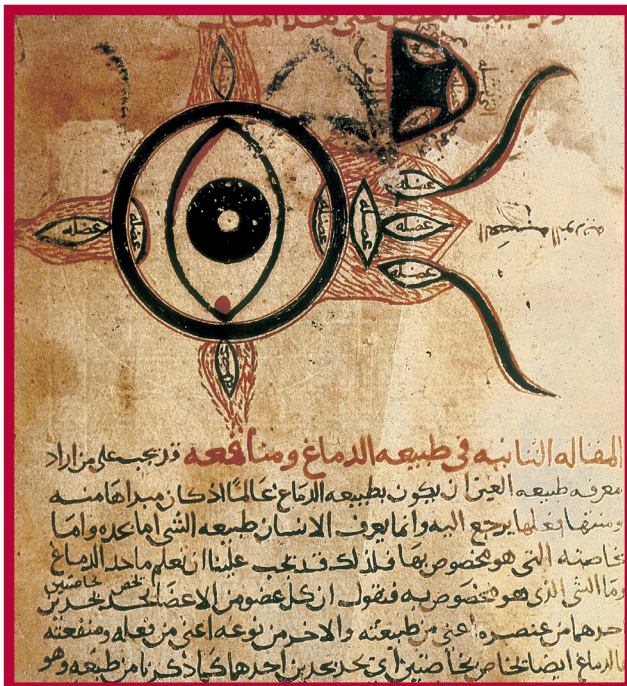 عضله
عضله
عضله
عضله
عضله
عضله
عضله
عضله
المقاله الثانيه في طبيعه الدماغ ومنافعه قد يجب على من اراد
معرفه طبيعه العين ان يكون بطبيعه الدماغ عالمًا اذ كان مبداها منه
ومنتها فعلها يرجع اليه وانما يعرف الانسان طبيعه الشي اما بحده واما
بخاصته التي هو مخصوص بها فلذلك قد يجب علينا ان نعلم ما حد الدماغ
وما الشي الذي هو مخصوص به فنقول ان كل عضو من الاعضا يحد بحدين
يخص بخاصتين
احدهما من عنصره اعني من طبيعته والاخر من نوعه اعني من فعله ومنفعته
فالدماغ ايضا خاص بخاصتين اي يحد بحدين احدهما كما ذكرنا من طبيعه وهو